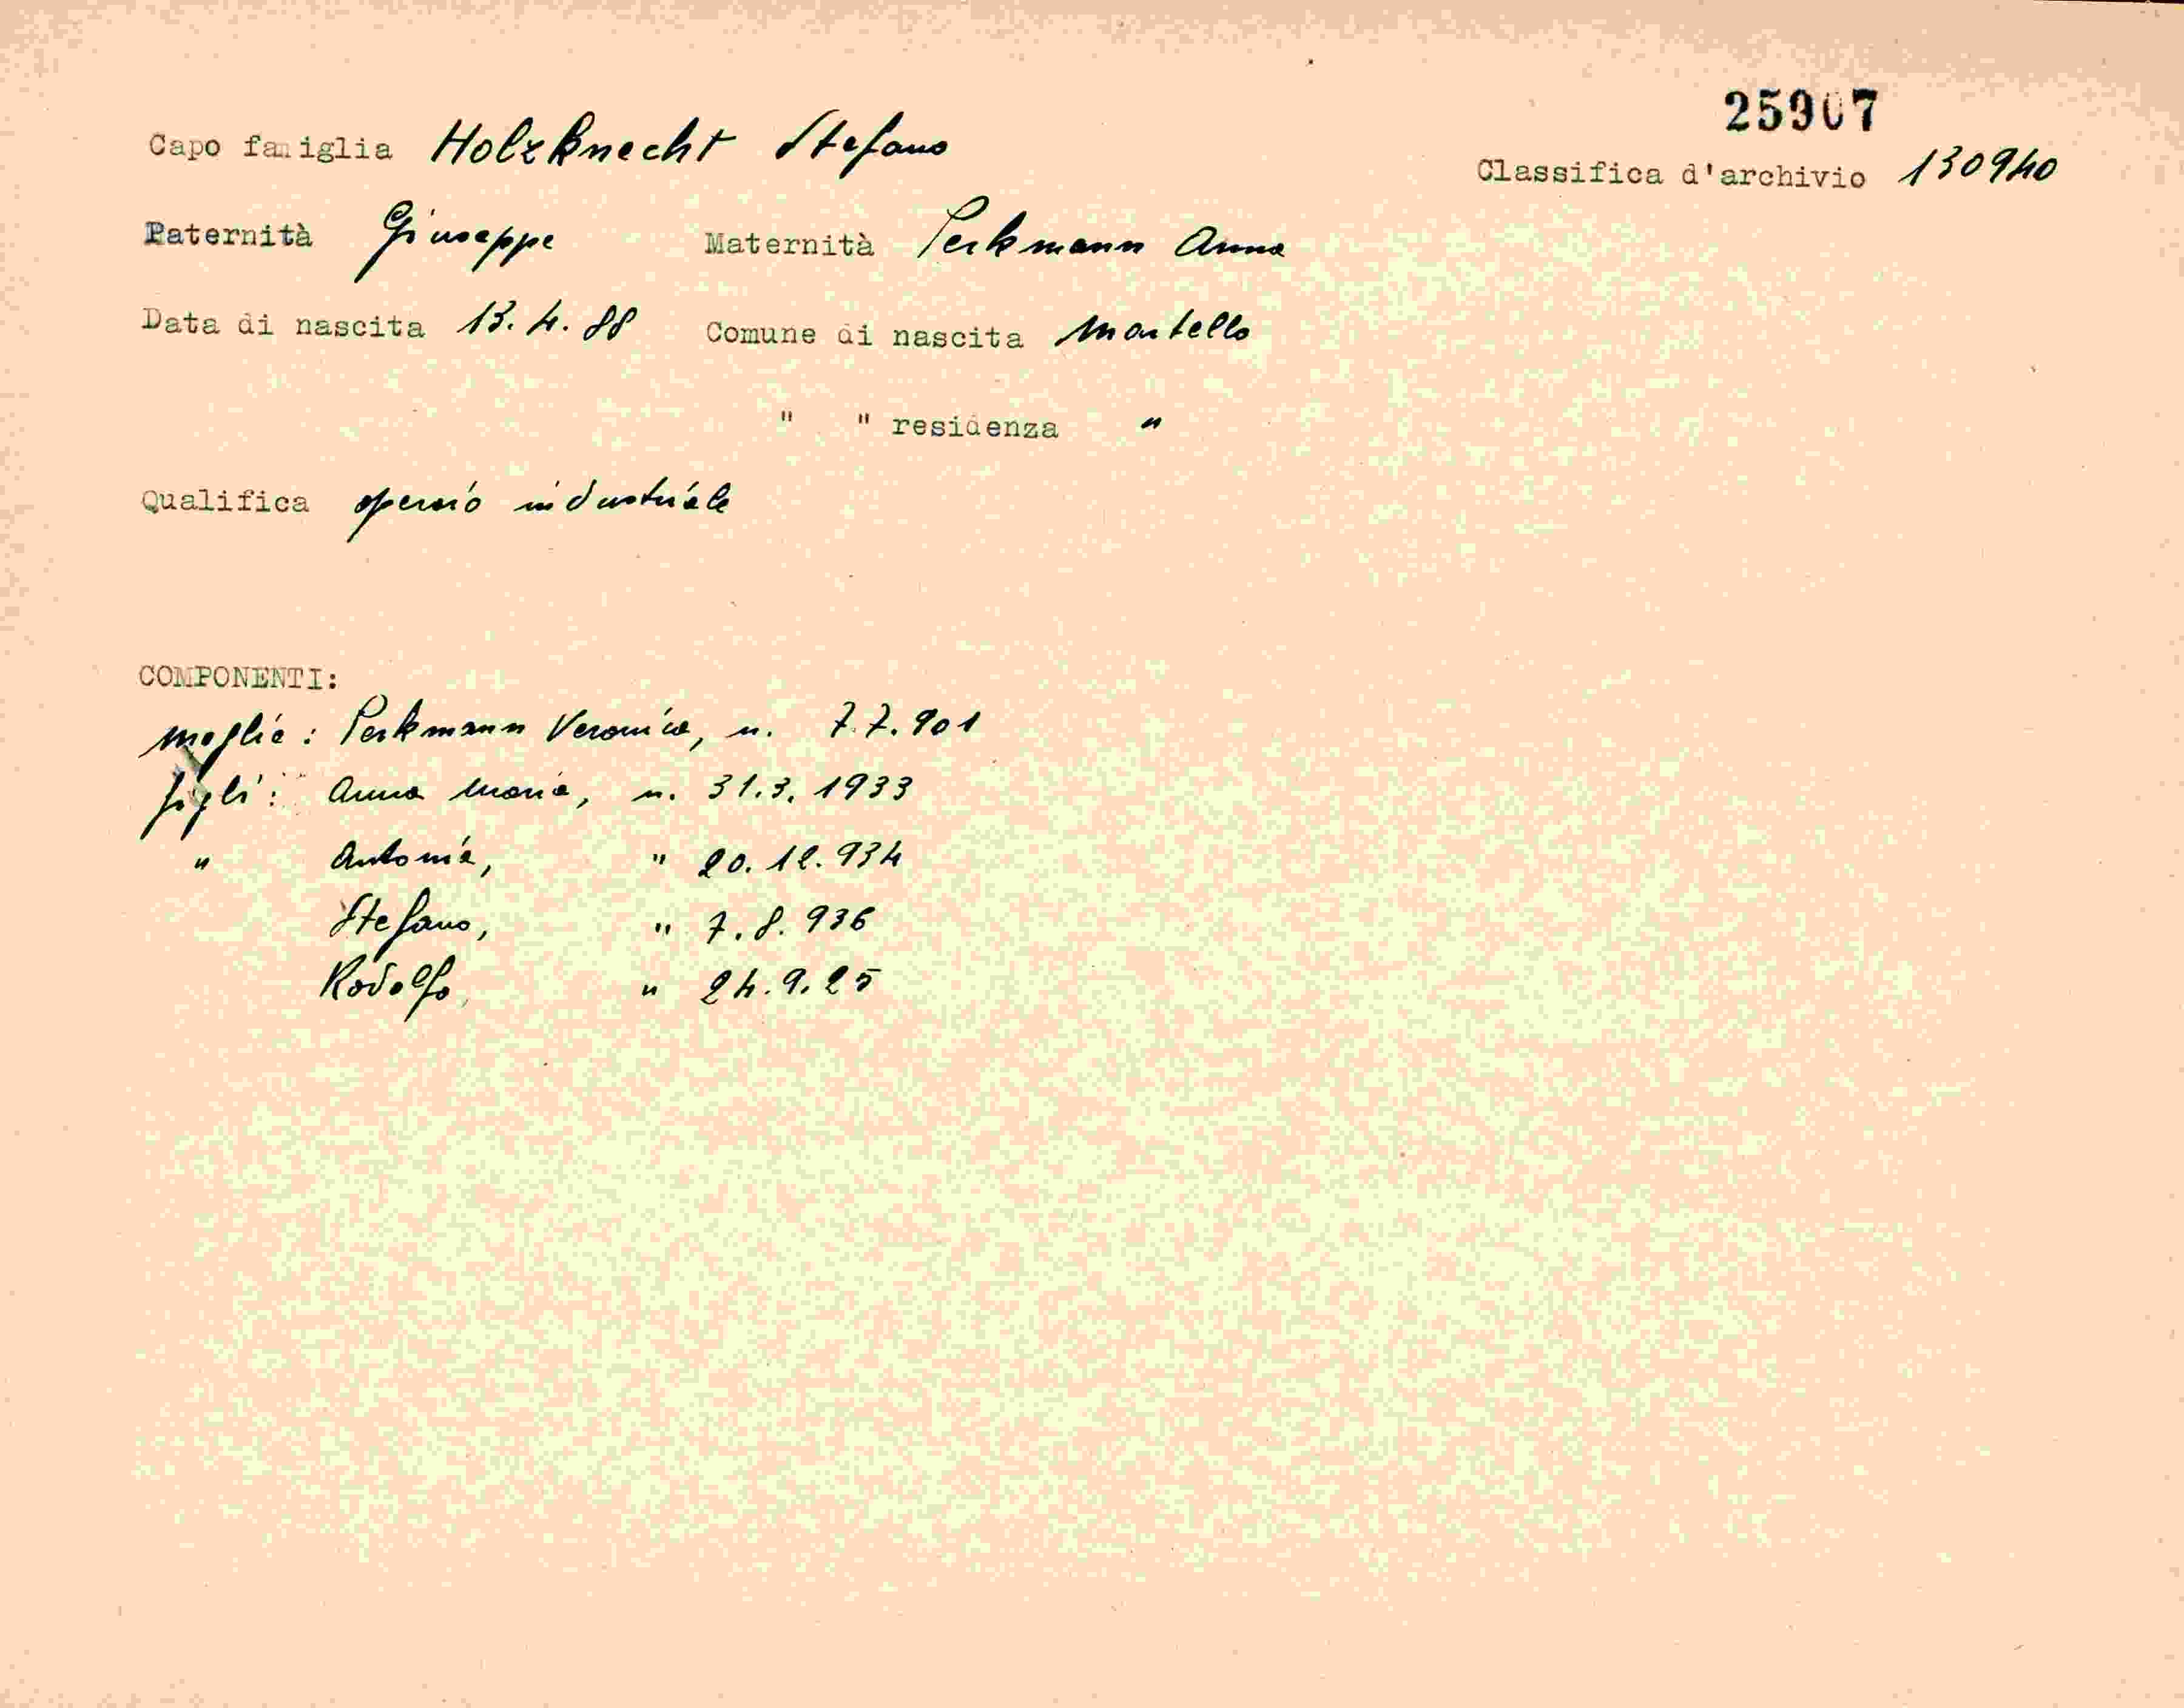 25907
Capo famiglia Holzknecht Stefano
Classifica d'archivio 130940
Paternità Giuseppe Maternità Perkmann Anna
Data di nascita 13.4.88 Comune di nascita Martello
" " residenza "
Qualifica operaio industriale
COMPONENTI:
moglie: Perkmann Veronica, n. 7.7.901
figli: Anna Maria, n. 31.3.1933
" Antonia, " 20.12.934
Stefano, " 7.8.936
Rodolfo, " 24.9.25